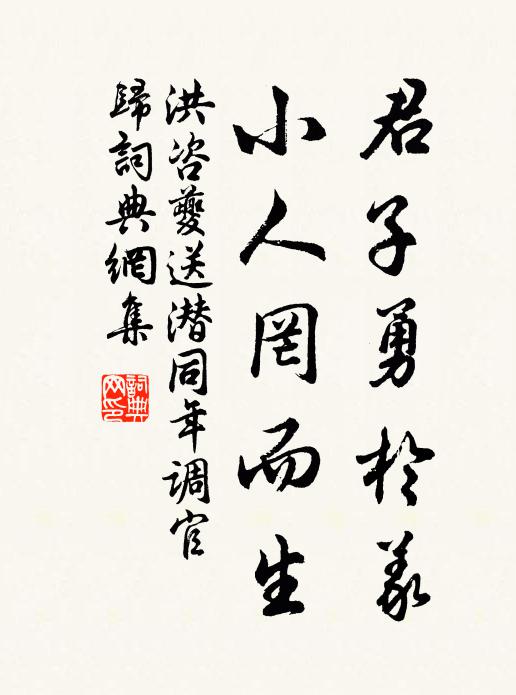 君子勇於義
小人罔而生
洪咨夔送潜同年調官
歸詞典網集
詞典
网印